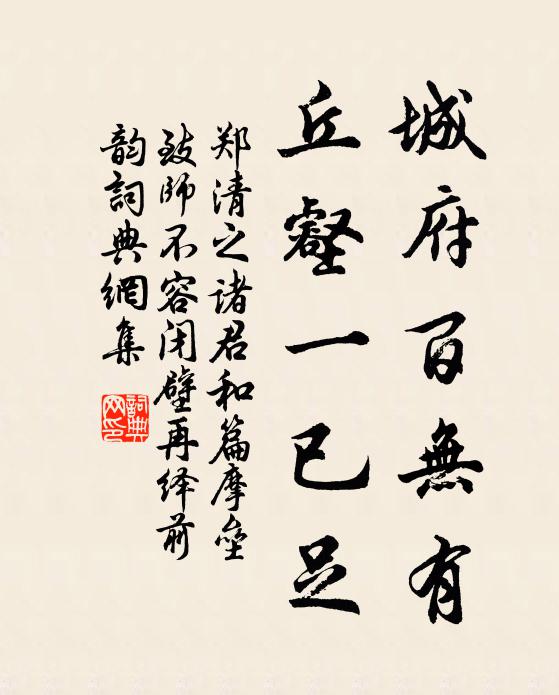 城府百無有
丘壑一已足
郑清之诸君和篇摩垒
致師不容闭壁再绎前
韵詞典網集
詞典网印